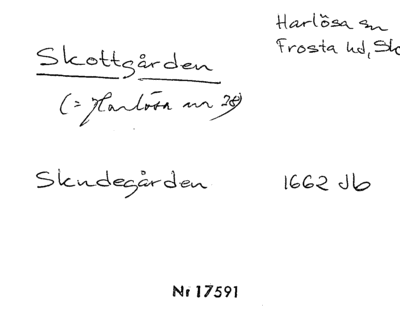 Harlösa sn
Frosta hd, Sk
Skottgården
(= Harlösa nr 28)
Skudegården 1662 Jb
Nr 17591